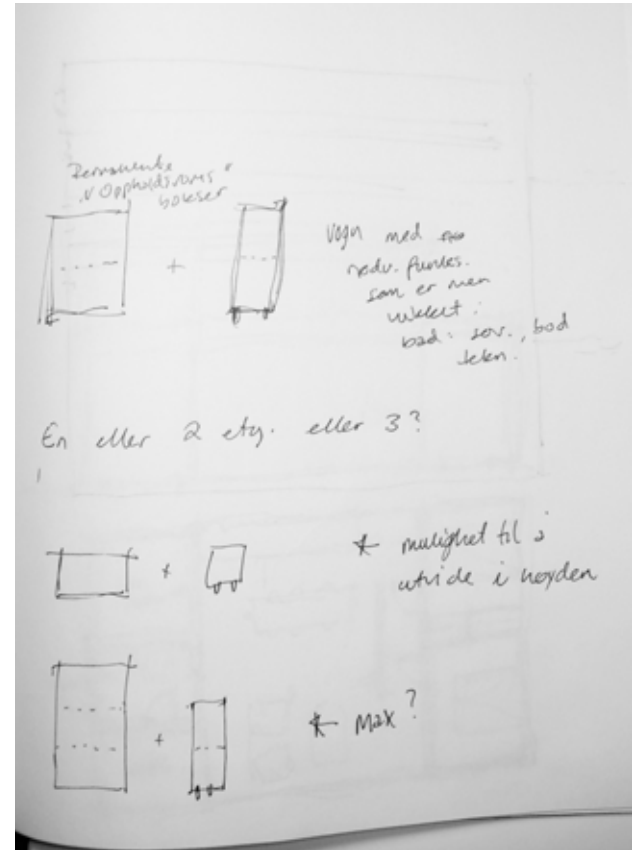 Permanente
"Oppholdsroms"
bokser
+
Vogn med
nødv. funks.
som er mer
bad. sov., bod
En eller 2 etg. eller 3?
+
* mulighet til å
utvide i høyden
+
* Max?